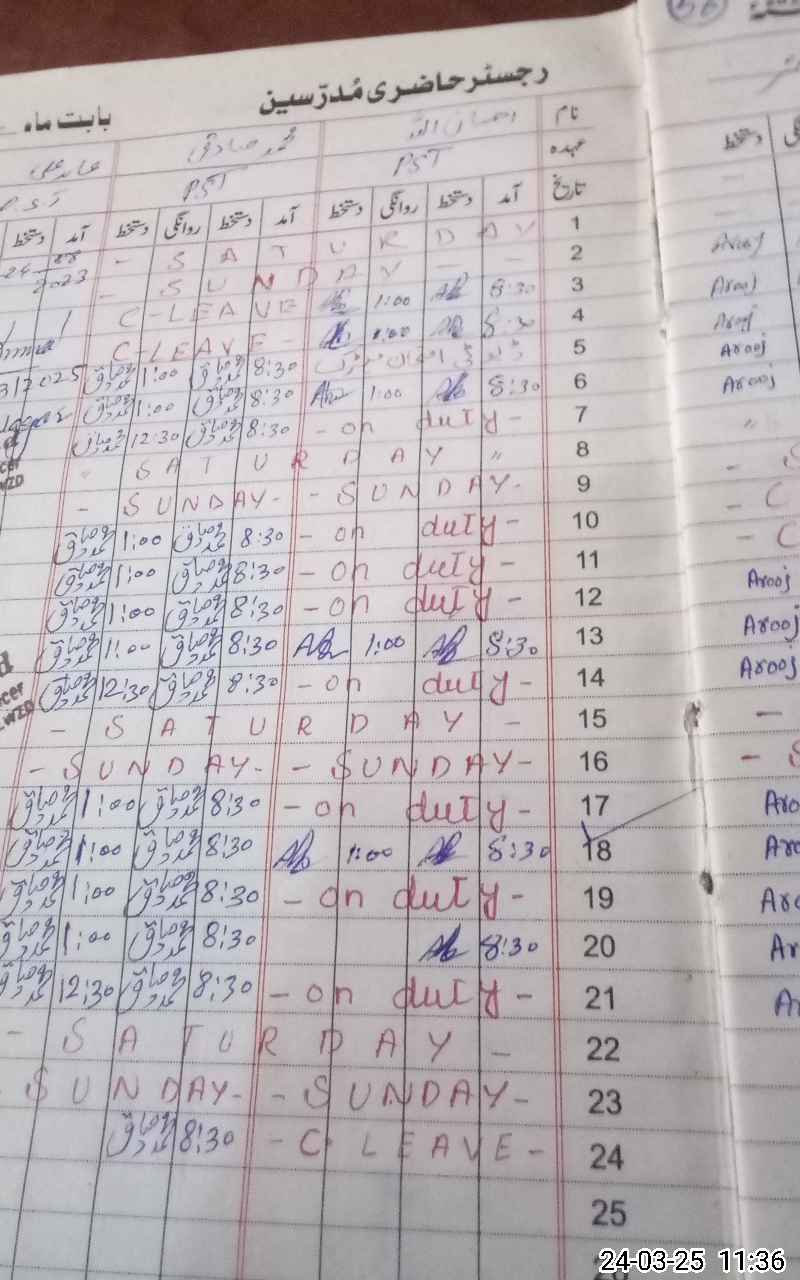 56
رجسٹر حاضری مُدرّسین
بابت ماہ
نام احسان اللہ محمد صادق عابد علی
عہدہ PST PST P.S.T
تاریخ آمد دستخط روانگی دستخط آمد دستخط روانگی دستخط آمد دستخط
دستخط
1 SATURDAY -
2 - SUNDAY - 2023
3 8:30 1:00 C-LEAVE Arooj
4 8:30 1:00 C-LEAVE - Arooj
5 8:30 محمد صادق 1:00 محمد صادق 3/2025 Arooj
6 8:30 1:00 8:30 محمد صادق 1:00 محمد صادق Arooj
7 - on duty - 8:30 محمد صادق 12:30 محمد صادق Arooj
8 " SATURDAY "
9 - SUNDAY - - SUNDAY - -
10 - on duty - 8:30 محمد صادق 1:00 محمد صادق - C
11 - on duty - 8:30 محمد صادق 1:00 محمد صادق - C
12 - on duty - 8:30 محمد صادق 1:00 محمد صادق Arooj
13 8:30 1:00 8:30 محمد صادق 1:00 محمد صادق Arooj
14 - on duty - 8:30 محمد صادق 12:30 محمد صادق Arooj
15 - SATURDAY - -
16 - SUNDAY - - SUNDAY - - S
17 - on duty - 8:30 محمد صادق 1:00 محمد صادق Aro
18 8:30 1:00 8:30 محمد صادق 1:00 محمد صادق Aro
19 - on duty - 8:30 محمد صادق 1:00 محمد صادق Aro
20 8:30 8:30 محمد صادق 1:00 محمد صادق Ar
21 - on duty - 8:30 محمد صادق 12:30 محمد صادق A
22 - SATURDAY -
23 - SUNDAY - - SUNDAY -
24 - C LEAVE - 8:30 محمد صادق
25
24-03-25 11:36